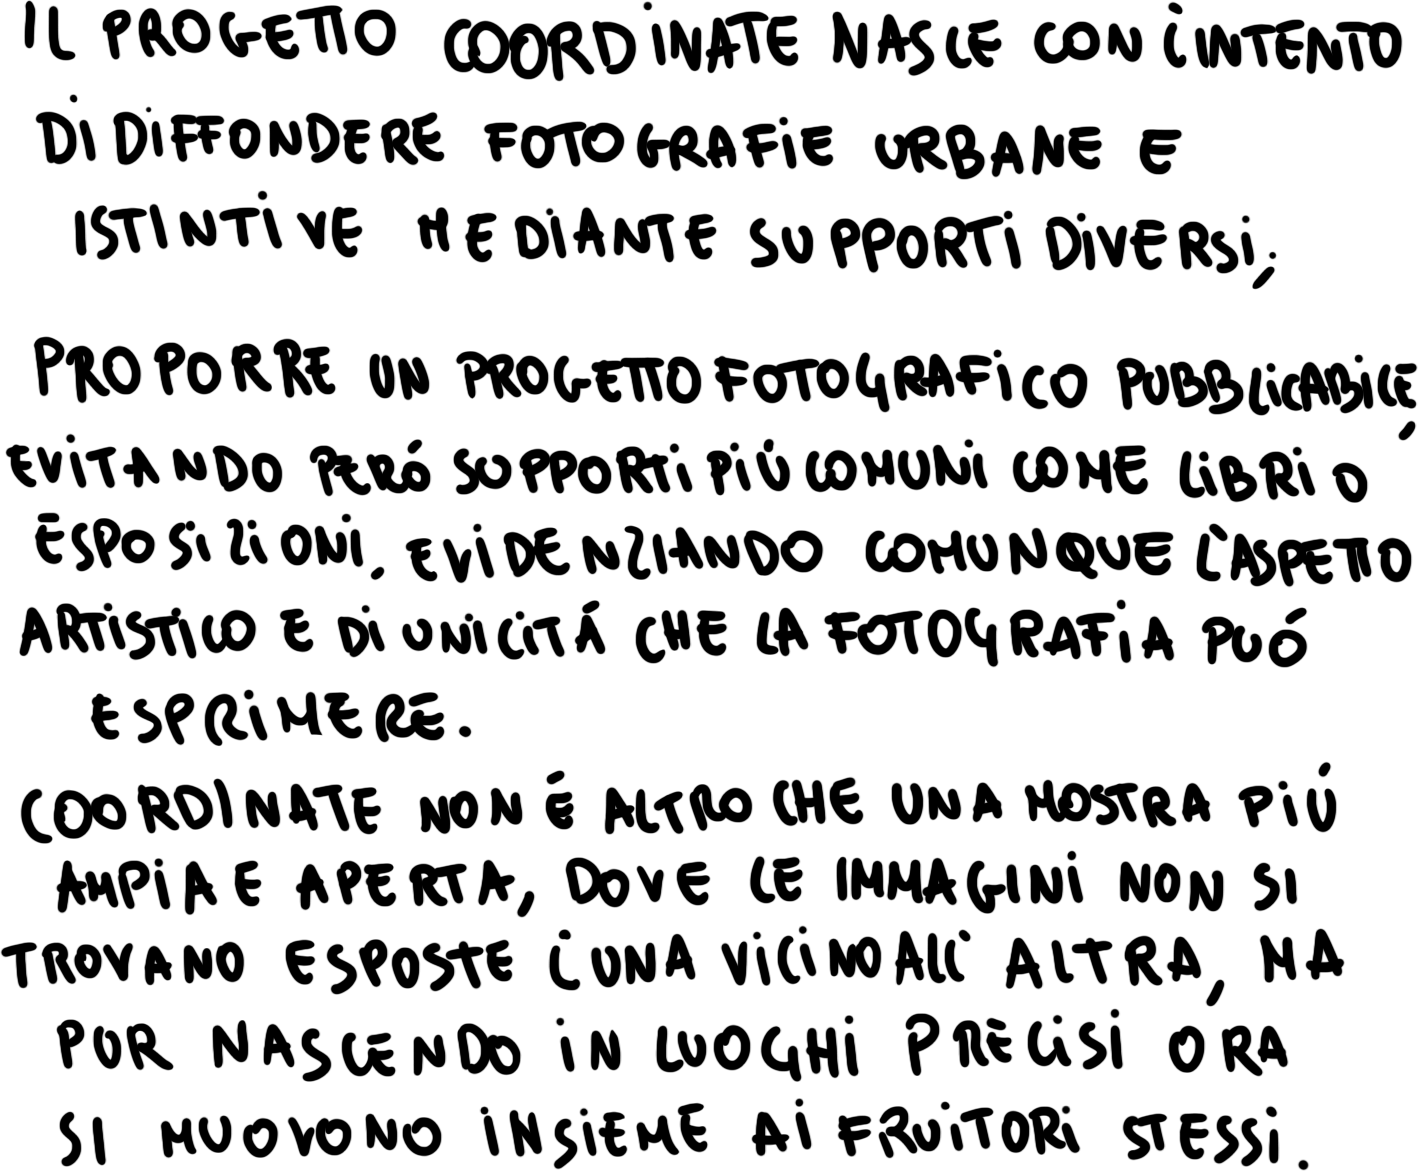 IL PROGETTO COORDINATE NASCE CON L'INTENTO
DI DIFFONDERE FOTOGRAFIE URBANE E
ISTINTIVE MEDIANTE SUPPORTI DIVERSI;
PROPORRE UN PROGETTO FOTOGRAFICO PUBBLICABILE,
EVITANDO PERÓ SUPPORTI PIÚ COMUNI COME LIBRI O
ESPOSIZIONI, EVIDENZIANDO COMUNQUE L'ASPETTO
ARTISTICO E DI UNICITÁ CHE LA FOTOGRAFIA PUÓ
ESPRIMERE.
COORDINATE NON É ALTRO CHE UNA MOSTRA PIÚ
AMPIA E APERTA, DOVE LE IMMAGINI NON SI
TROVANO ESPOSTE L'UNA VICINO ALL'ALTRA, MA
PUR NASCENDO IN LUOGHI PRECISI ORA
SI MUOVONO INSIEME AI FRUITORI STESSI.